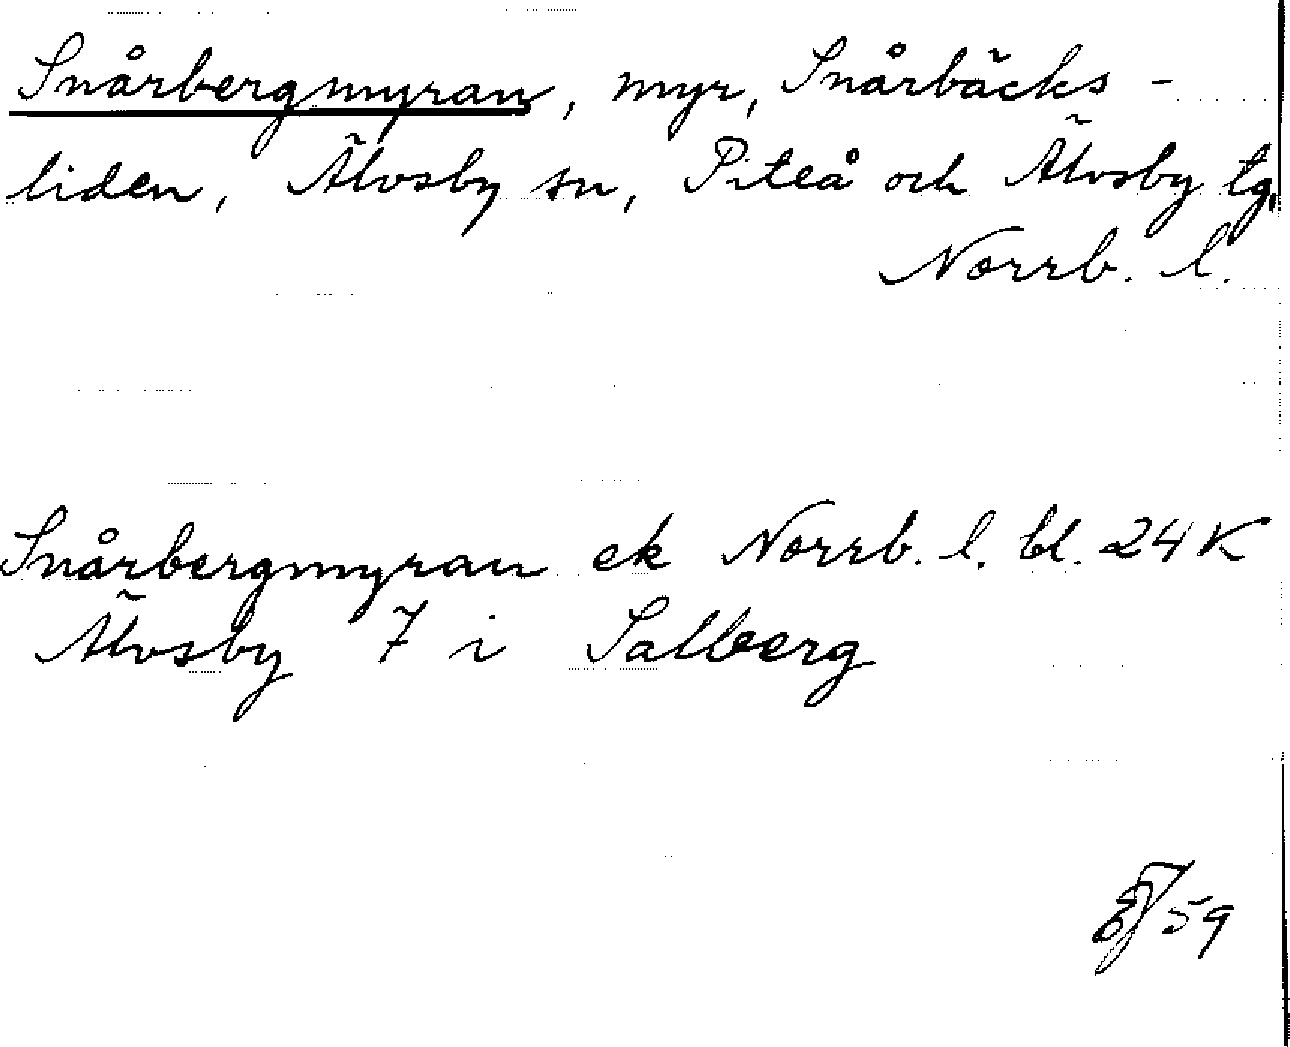 Snårbergmyran, myr, Snårbäcks-
liden, Älvsby sn, Piteå och Älvsby tg,
Norrb. l.
Snårbergmyran ek Norrb. l. bl. 24K
Älvsby 7 i Salberg
59